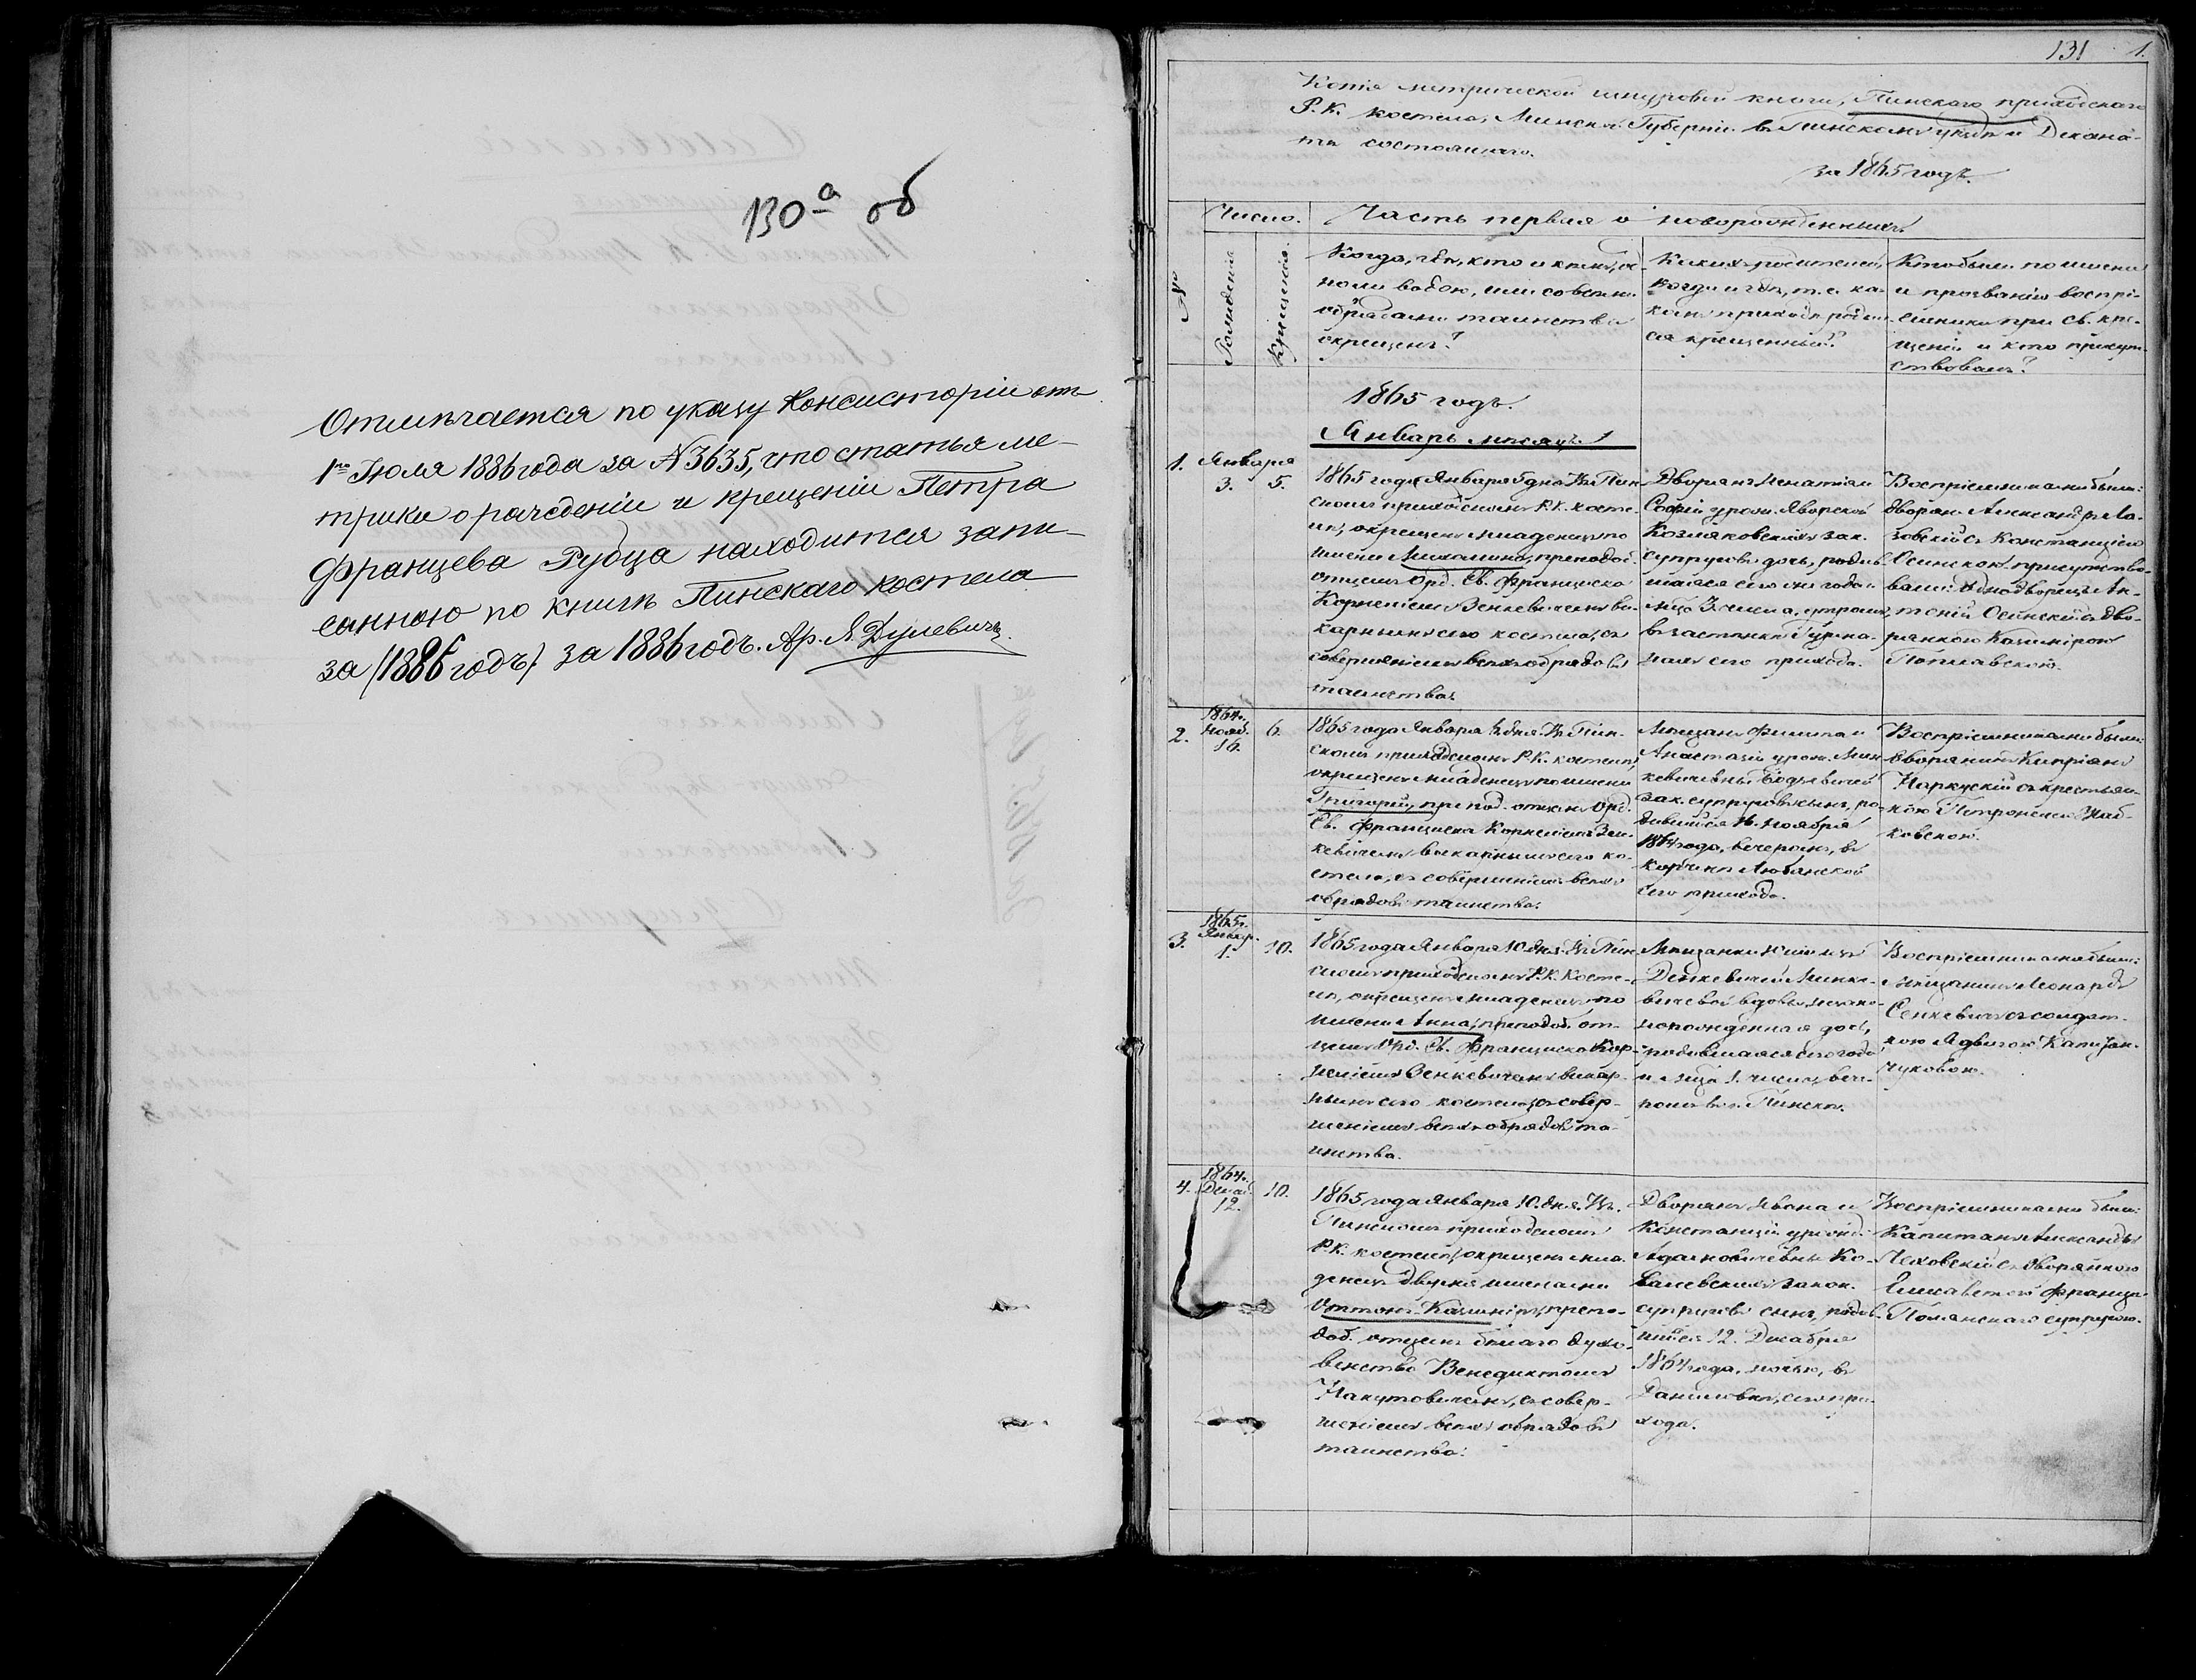 130а об
Отмѣчается по указу Консисторіи отъ
1го Іюля 1886 года за №3635, что статья ме-
трики о рожденіи и крещеніи Петра
Францева Рубца находится запи-
санною по книгѣ Пинскаго костела
за (1886 годъ) за 1886 годъ. Ар. Я. Дулевичъ
131 1.
Копія метрической шнуровой книги, Пинскаго приходскаго
Р. К. костела, Минской Губерніи въ Пинскомъ уѣздѣ и Декана-
тѣ состоящаго.
за 1865 годъ.
Число. Часть первая о новорожденныхъ.
№
Рожденія
Крещенія
Когда, гдѣ, кто и кѣмъ, од-
ною водою, или со всѣми
обрядами таинства
окрещенъ?
Какихъ родителей,
когда и гдѣ, т. е. въ ка-
комъ приходѣ родил-
ся крещенный?
Кто были по имени
и прозванію воспрі-
емники при св. кре-
щеніи и кто присут-
ствовалъ?
1865 годъ.
Январь мѣсяцъ
1. Января
3. 5.
1865 года Января 5 дня. Въ Пин-
скомъ приходскомъ Р. К. косте-
лѣ, окрещенъ младенецъ по
имени преподоб.
отцемъ Орд. Св. Франциска
Корнеліемъ Зенкевичемъ ви-
карнымъ сего костела, съ
совершеніемъ всѣхъ обрядовъ
таинства.
Дворянъ Игнатія и
Софіи урожд. Яворской
Козляковскихъ зак.
супруговъ дочь, родив-
шаяся сего же года и
м-ца 3 числа, утромъ,
въ застѣнкѣ
сего прихода.
Воспріемниками были:
дворян. Александръ Ла-
зовскій съ Констанціею
Осинскою, присутство-
вали: однодворецъ Ан-
тоній Осинскій съ дво-
рянкою Казимірою
Поплавскою.
2. 1864 г.
Нояб.
16. 6.
1865 года Января 6 дня. Въ Пин-
скомъ приходскомъ Р. К. костелѣ
окрещенъ младенецъ по имени
Григорій, препод. отцемъ Орд.
Св. Франциска Корнеліемъ Зен-
кевичемъ викарнымъ сего ко-
стела, съ совершеніемъ всѣхъ
обрядовъ таинства.
Мѣщанъ Филипа и
Анастасіи урож. Мин-
кевичевны
зак. супруговъ сынъ, ро-
дившійся 16 Ноября
1864 года, вечеромъ, въ
корчмѣ Любанской
сего прихода.
Воспріемниками были:
дворянинъ Кипріанъ
Наркускій съ крестьян-
кою Петронелею
3. 1865 г.
Январ.
1. 10.
1865 года Января 10 дня. Въ Пин-
скомъ приходскомъ Р. К. косте-
лѣ, окрещенъ младенецъ по
имени Анна, преподоб. от-
цемъ Орд. Св. Франциска Кор-
неліемъ Зенкевичемъ викар-
нымъ сего костела, съ совер-
шеніемъ всѣхъ обрядовъ та-
инства.
Мѣщанки
Минке-
вичевой вдовы, незако-
норожденная дочь,
родившаяся сего года
и м-ца 1. числа, вече-
ромъ въ г. Пинскѣ.
Воспріемниками были:
мѣщанинъ Леонардъ
Сенкевичъ съ солдат-
кою Ядвигою Капитан-
чуковою.
4. 1864 г.
Декаб.
12. 10.
1865 года Января 10 дня. Въ
Пинскомъ приходскомъ
Р. К. костелѣ, окрещенъ мла-
денецъ двумя именами
Оттонъ-Казиміръ, препо-
доб. отцемъ бѣлаго духо-
венства Венедиктомъ
Накутовичемъ, съ совер-
шеніемъ всѣхъ обрядовъ
таинства.
Дворянъ Ивана и
Констанціи урожд.
Адамовичевны Ко-
валевскихъ закон.
супруговъ сынъ, родив-
шійся 12. Декабря
1864 года, ночью, въ
Даниловкѣ, сего при-
хода.
Воспріемниками были:
Капитанъ Александръ
Ляховскій съ дворянкою
Елисаветою Франца
Полянскаго супругою.